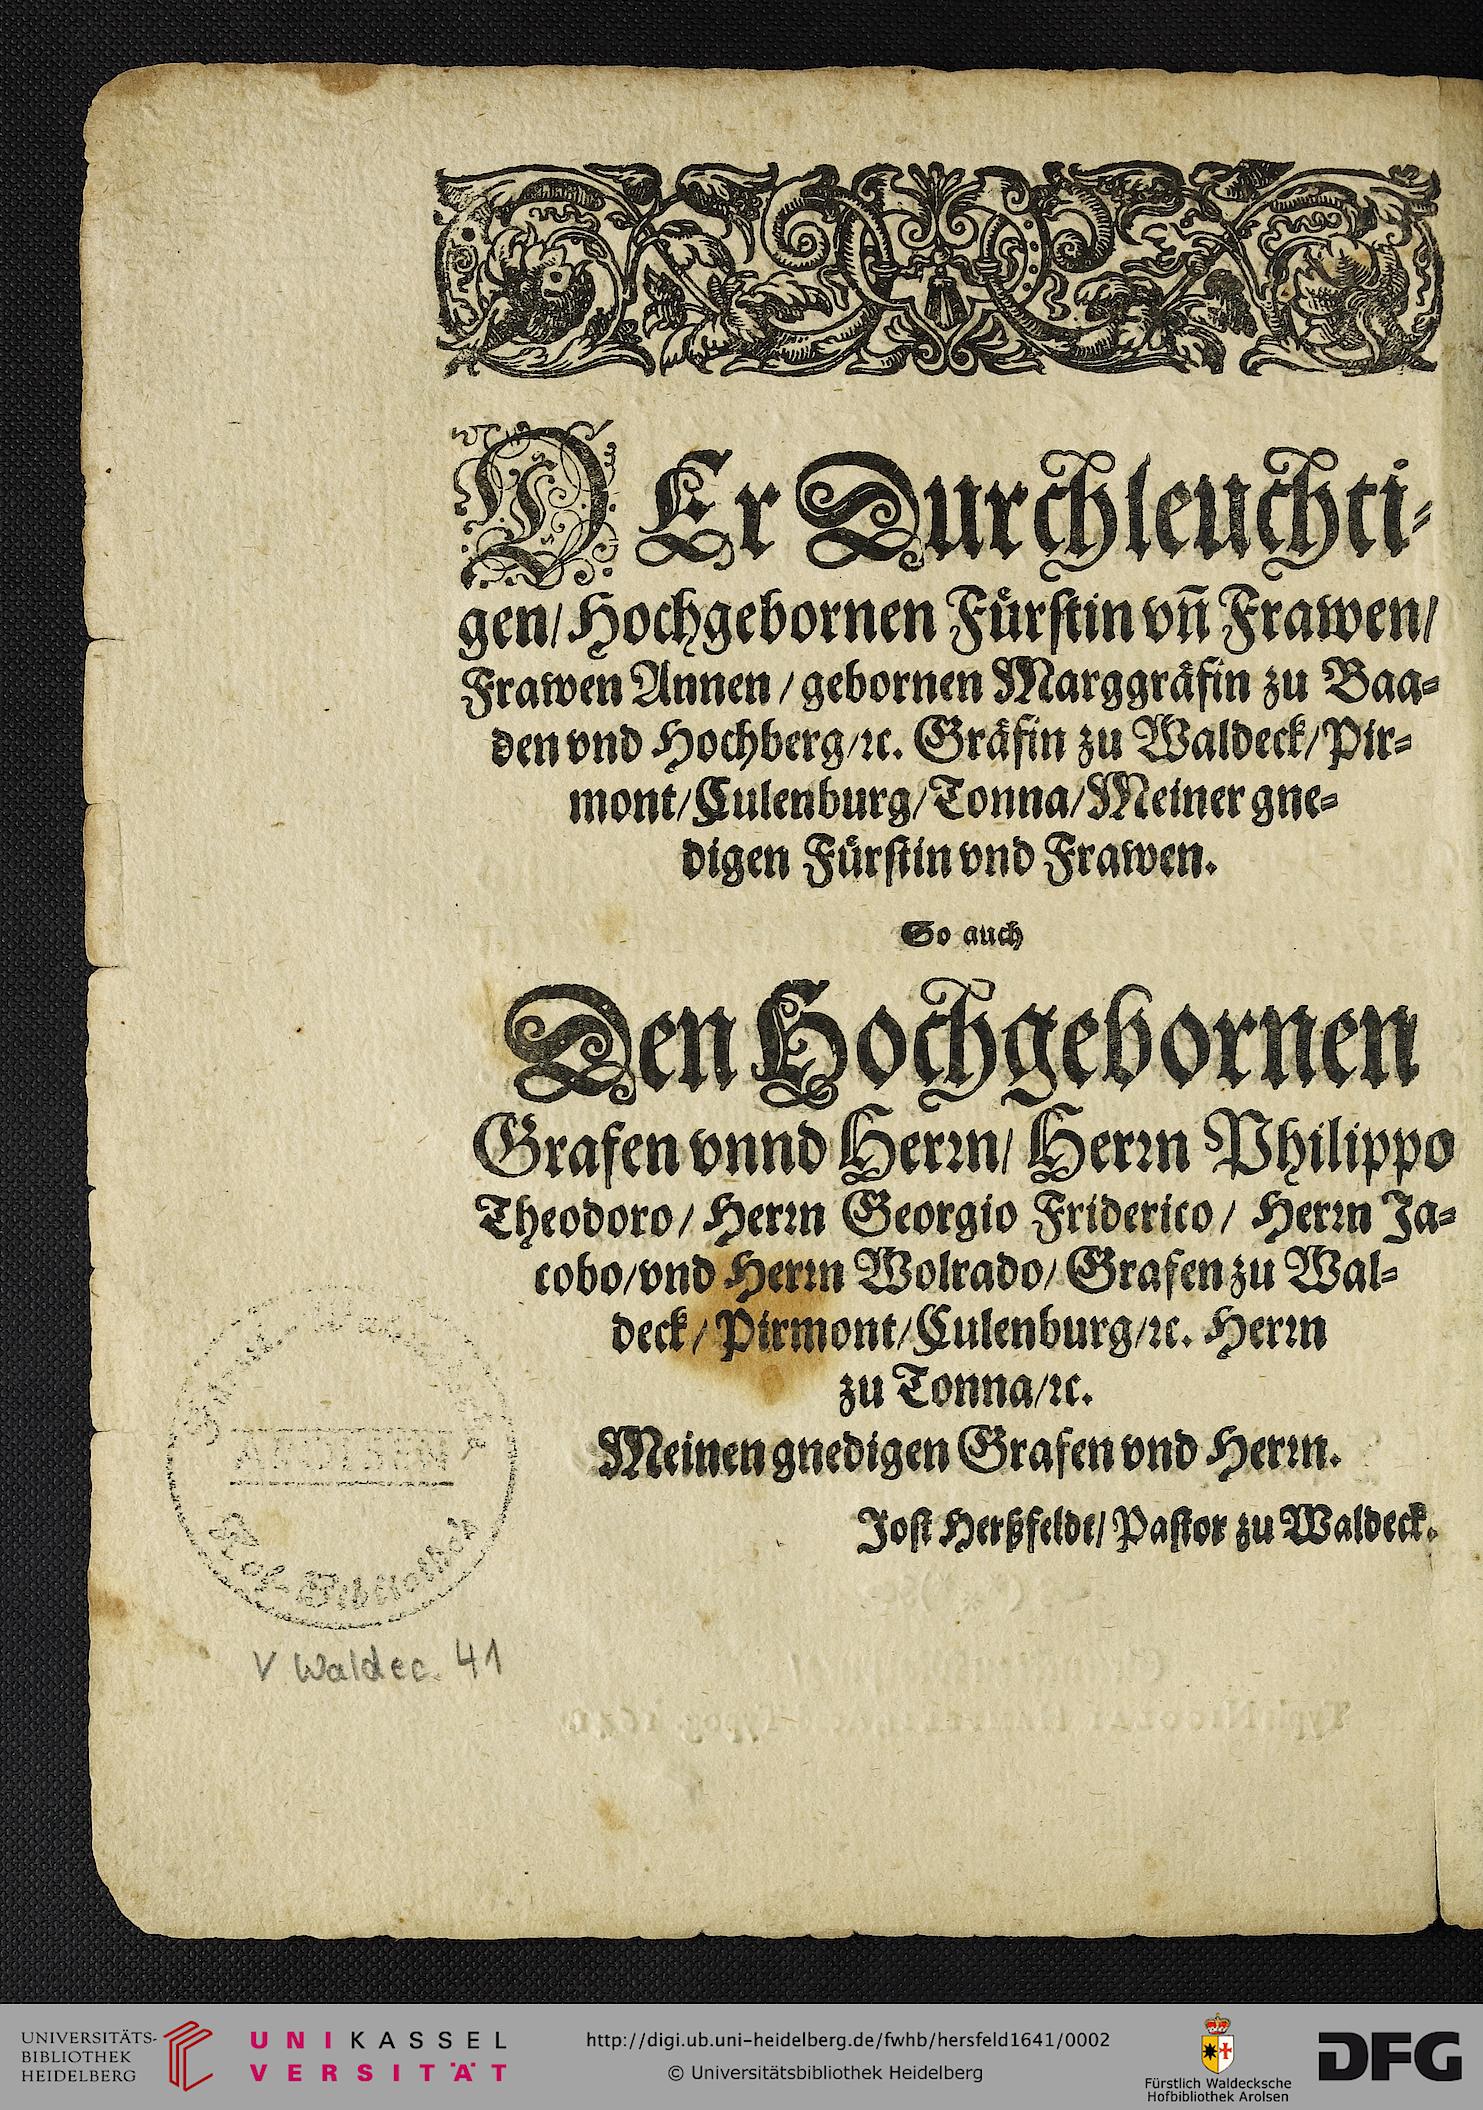 DEr Durchleuchti-
gen/ Hochgebornen Fürstin vñ Frawen/
Frawen Annen / gebornen Marggräfin zu Baa-
den vnd Hochberg/ꝛc. Gräfin zu Waldeck/Pir-
mont/Culenburg/Tonna/Meiner gne-
digen Fürstin vnd Frawen.
So auch
Den Hochgebornen
Grafen vnnd Herꝛn/ Herꝛn Philippo
Theodoro/ Herꝛn Georgio Friderico/ Herꝛn Ja-
cobo/vnd Herꝛn Wolrado/ Grafen zu Wal-
deck/ Pirmont/Culenburg/ꝛc. Herꝛn
zu Tonna/ꝛc.
Meinen gnedigen Grafen vnd Herꝛn.
Jost Herßfeldt/ Pastor zu Waldeck.
AROLSEN
Hof-Bibliothek
V Waldec. 41
UNIVERSITÄTS-
BIBLIOTHEK
HEIDELBERG
UNIKASSEL
VERSITÄT
http://digi.ub.uni-heidelberg.de/fwhb/hersfeld1641/0002
© Universitätsbibliothek Heidelberg
Fürstlich Waldecksche
Hofbibliothek Arolsen
DFG